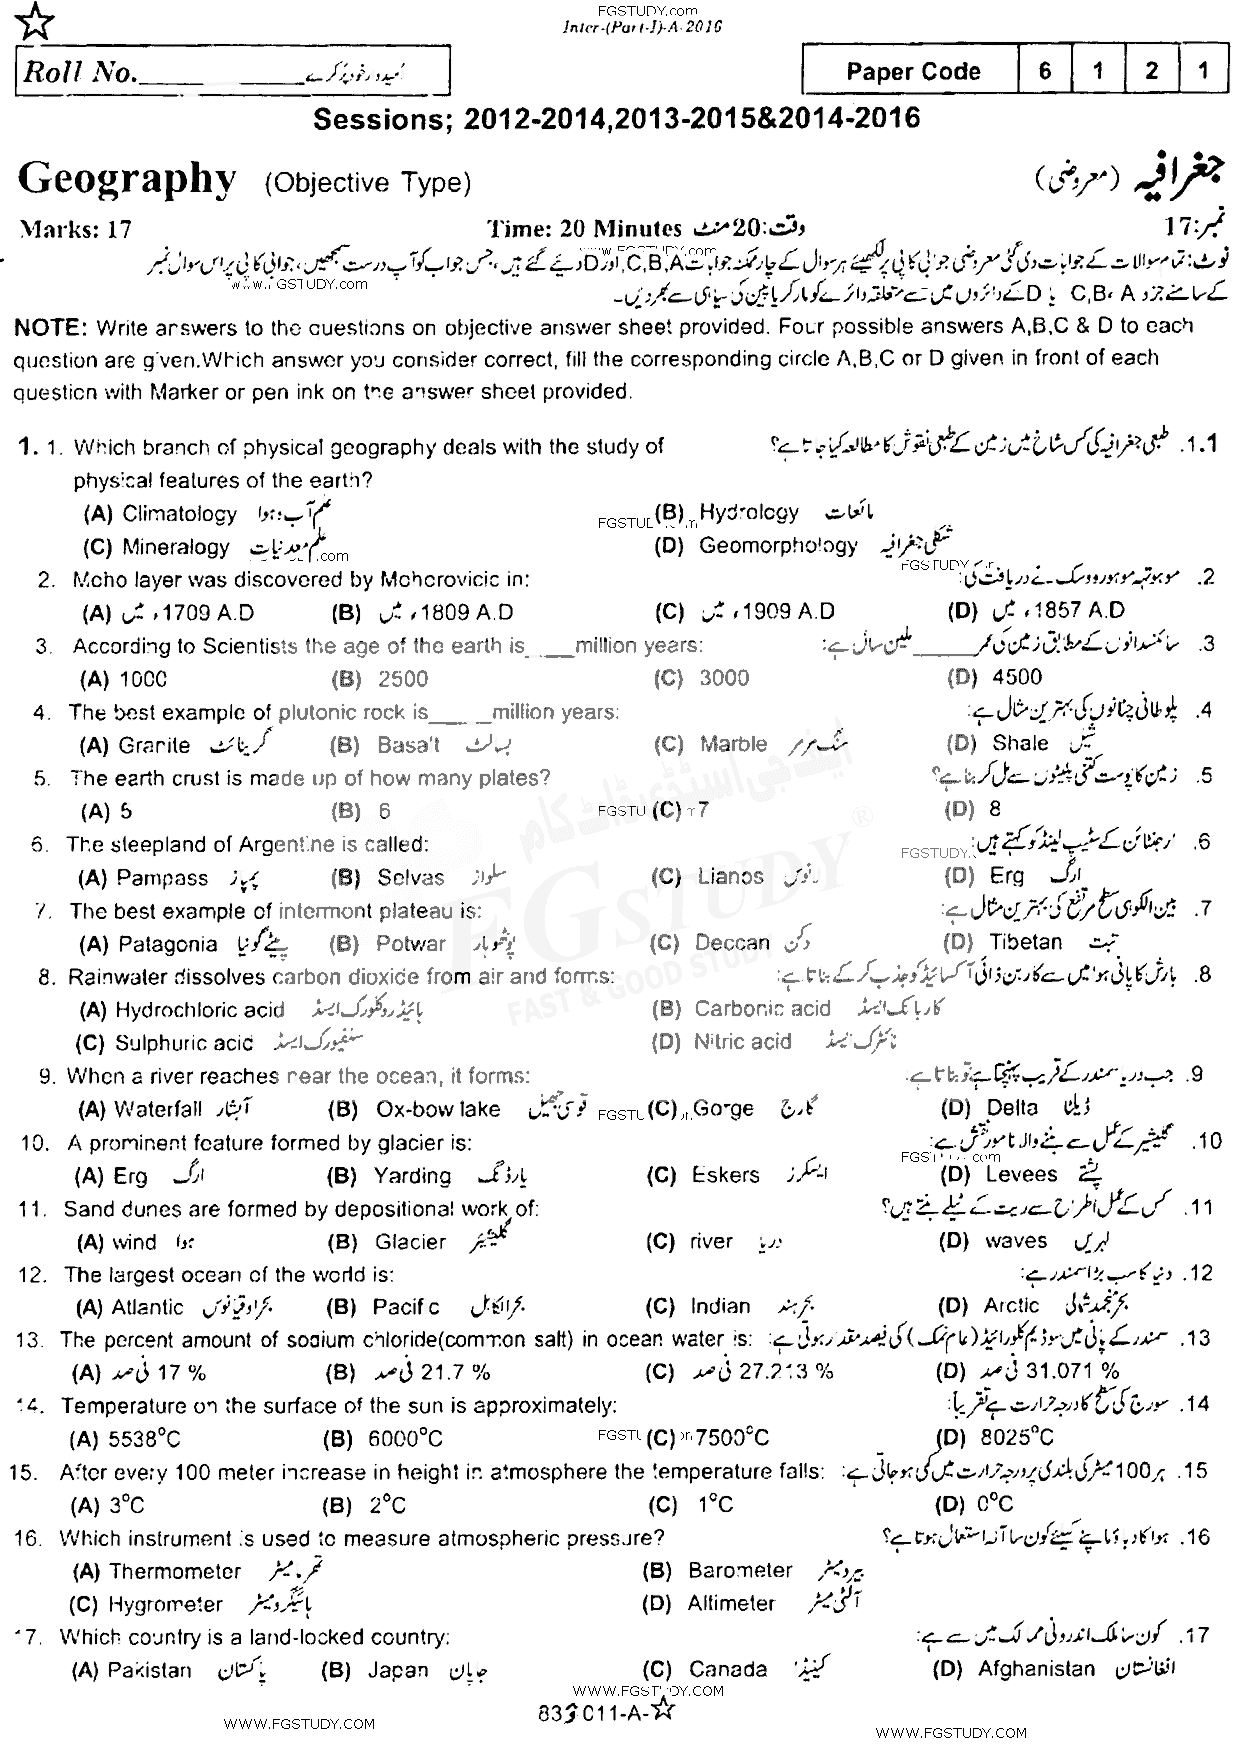 FGSTUDY.com
Inter-(Part-I)-A-2016
Roll No. اُمیدوار خود پُر کرے
Paper Code 6 1 2 1
Sessions; 2012-2014,2013-2015&2014-2016
Geography (Objective Type) جغرافیہ (معروضی)
Marks: 17 Time: 20 Minutes وقت:20 منٹ نمبر:17
نوٹ: تمام سوالات کے جوابات دی گئی معروضی جوابی کاپی پر لکھیئے ہر سوال کے چار ممکنہ جوابات C,B,A اور D دیئے گئے ہیں، جس جواب کو آپ درست سمجھیں، جوابی کاپی پر اس سوال نمبر
www.FGSTUDY.com
www.FGSTUDY.com
کے سامنے جزو C,B, A یا D کے دائروں میں سے متعلقہ دائرے کو مارکر یا پین کی سیاہی سے بھر دیں۔
NOTE: Write answers to the questions on objective answer sheet provided. Four possible answers A,B,C & D to each
question are given.Which answer you consider correct, fill the corresponding circle A,B,C or D given in front of each
question with Marker or pen ink on the answer sheet provided.
1. 1. Which branch of physical geography deals with the study of 1.1. طبعی جغرافیہ کی کس شاخ میں زمین کے طبعی نقوش کا مطالعہ کیا جاتا ہے؟
physical features of the earth?
(A) Climatology علم آب و ہوا (B) Hydrology مائعات
(C) Mineralogy علم معدنیات (D) Geomorphology شکلی جغرافیہ
2. Moho layer was discovered by Mohorovicic in: 2. موہو تہہ موہوروسک نے دریافت کی:
(A) میں ،1709 A.D (B) میں ،1809 A.D (C) میں ،1909 A.D (D) میں ،1857 A.D
3. According to Scientists the age of the earth is ____million years: 3. سائنسدانوں کے مطابق زمین کی عمر ____ ملین سال ہے:
(A) 1000 (B) 2500 (C) 3000 (D) 4500
4. The best example of plutonic rock is____ million years: 4. پلوطانی چٹانوں کی بہترین مثال ہے:
(A) Granite گرینائٹ (B) Basalt بسالٹ (C) Marble سنگ مرمر (D) Shale شیل
5. The earth crust is made up of how many plates? 5. زمین کا پوست کتنی پلیٹوں سے مل کر بنا ہے؟
(A) 5 (B) 6 (C) 7 (D) 8
6. The steepland of Argentine is called: 6. ارجنٹائن کے سٹیپ لینڈ کو کہتے ہیں:
(A) Pampass پمپاز (B) Selvas سلواز (C) Lianos لانوس (D) Erg ارگ
7. The best example of intermont plateau is: 7. بین الکوہی سطح مرتفع کی بہترین مثال ہے:
(A) Patagonia پیٹے گونیا (B) Potwar پوٹھوہار (C) Deccan دکن (D) Tibetan تبت
8. Rainwater dissolves carbon dioxide from air and forms: 8. بارش کا پانی ہوا میں سے کاربن ڈائی آکسائیڈ کو جذب کر کے بناتا ہے:
(A) Hydrochloric acid ہائیڈروکلورک ایسڈ (B) Carbonic acid کاربانک ایسڈ
(C) Sulphuric acid سلفیورک ایسڈ (D) Nitric acid نائٹرک ایسڈ
9. When a river reaches near the ocean, it forms: 9. جب دریا سمندر کے قریب پہنچتا ہے تو بناتا ہے:
(A) Waterfall آبشار (B) Ox-bow lake قوسی جھیل (C) Gorge گارج (D) Delta ڈیلٹا
10. A prominent feature formed by glacier is: 10. گلیشیر کے عمل سے بننے والا نامور نقش ہے:
(A) Erg ارگ (B) Yarding یارڈنگ (C) Eskers ایسکرز (D) Levees پشتے
11. Sand dunes are formed by depositional work of: 11. کس کے عمل اطراح سے ریت کے ٹیلے بنتے ہیں؟
(A) wind ہوا (B) Glacier گلیشیئر (C) river دریا (D) waves لہریں
12. The largest ocean of the world is: 12. دنیا کا سب بڑا سمندر ہے:
(A) Atlantic بحراوقیانوس (B) Pacific بحرالکاہل (C) Indian بحرہند (D) Arctic بحرمنجمد شمالی
13. The percent amount of sodium chloride(common salt) in ocean water is: 13. سمندر کے پانی میں سوڈیم کلورائیڈ (عام نمک) کی فیصد مقدار ہوتی ہے:
(A) فی صد 17 % (B) فی صد 21.7 % (C) فی صد 27.213 % (D) فی صد 31.071 %
14. Temperature on the surface of the sun is approximately: 14. سورج کی سطح کا درجہ حرارت ہے تقریباً:
(A) 5538°C (B) 6000°C (C) 7500°C (D) 8025°C
15. After every 100 meter increase in height in atmosphere the temperature falls: 15. ہر 100 میٹر کی بلندی پر درجہ حرارت میں کمی ہو جاتی ہے:
(A) 3°C (B) 2°C (C) 1°C (D) 0°C
16. Which instrument is used to measure atmospheric pressure? 16. ہوا کا دباؤ ماپنے کیلئے کون سا آلہ استعمال ہوتا ہے؟
(A) Thermometer تھرمامیٹر (B) Barometer بیرومیٹر
(C) Hygrometer ہائیگرومیٹر (D) Altimeter آلٹی میٹر
17. Which country is a land-locked country: 17. کون سا ملک اندرونی ممالک میں سے ہے:
(A) Pakistan پاکستان (B) Japan جاپان (C) Canada کینیڈا (D) Afghanistan افغانستان
WWW.FGSTUDY.COM
833011-A-☆
WWW.FGSTUDY.COM
WWW.FGSTUDY.COM